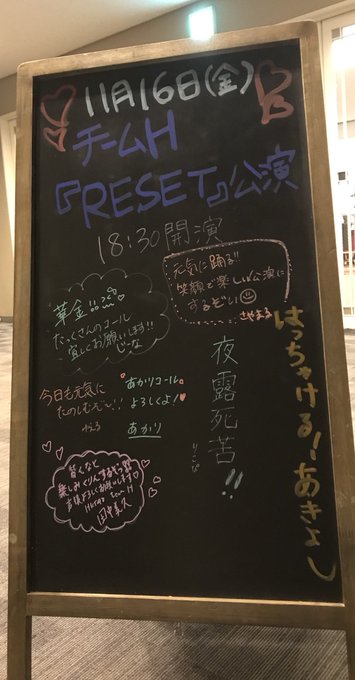 11月16日(金)
チームH
『RESET』公演
18:30開演
元気に踊る!!
笑顔で楽しい公演に
するぞい
さやまる
華金!!
たっくさんのコール
宜しくお願いします!!
じーな
はっちゃける!あきよし
夜露死苦!!
りこぴ
今日も元気に
たのしむぞ〜!!
あかりコール
よろしくよ!
あかり
皆くなと
楽しみくりんするぞっ
応援よろしくお願いします
HKT48 Team H
田中美久